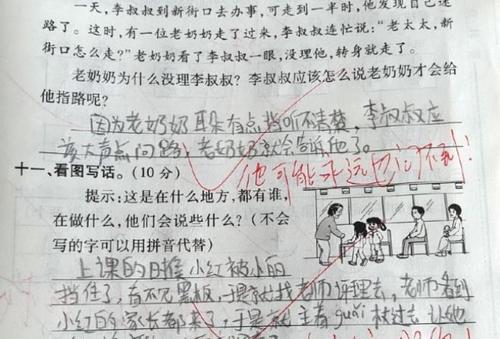 一天，李叔叔到新街口去办事，可走到一半时，他发现自己迷
路了。这时，有一位老奶奶走了过来，李叔叔连忙说："老太太，新
街口怎么走？"老奶奶看了李叔叔一眼，没理他，转身就走了。
老奶奶为什么没理李叔叔？李叔叔应该怎么说老奶奶才会给
他指路呢？
因为老奶奶耳朵有点挡听不清楚，李叔叔应
该大声点问路，老奶奶就会告诉他了。
他可能永远也问不到！
十一、看图写话。（10分）
提示：这是在什么地方，都有谁，
在做什么，他们会说些什么？（不会
写的字可以用拼音代替）
上课的时候小红被小的
挡住了，看不见黑板，于是就找老师评理去，老师看到
小红的家长都来了，于是就主着guǎi杖过去让他